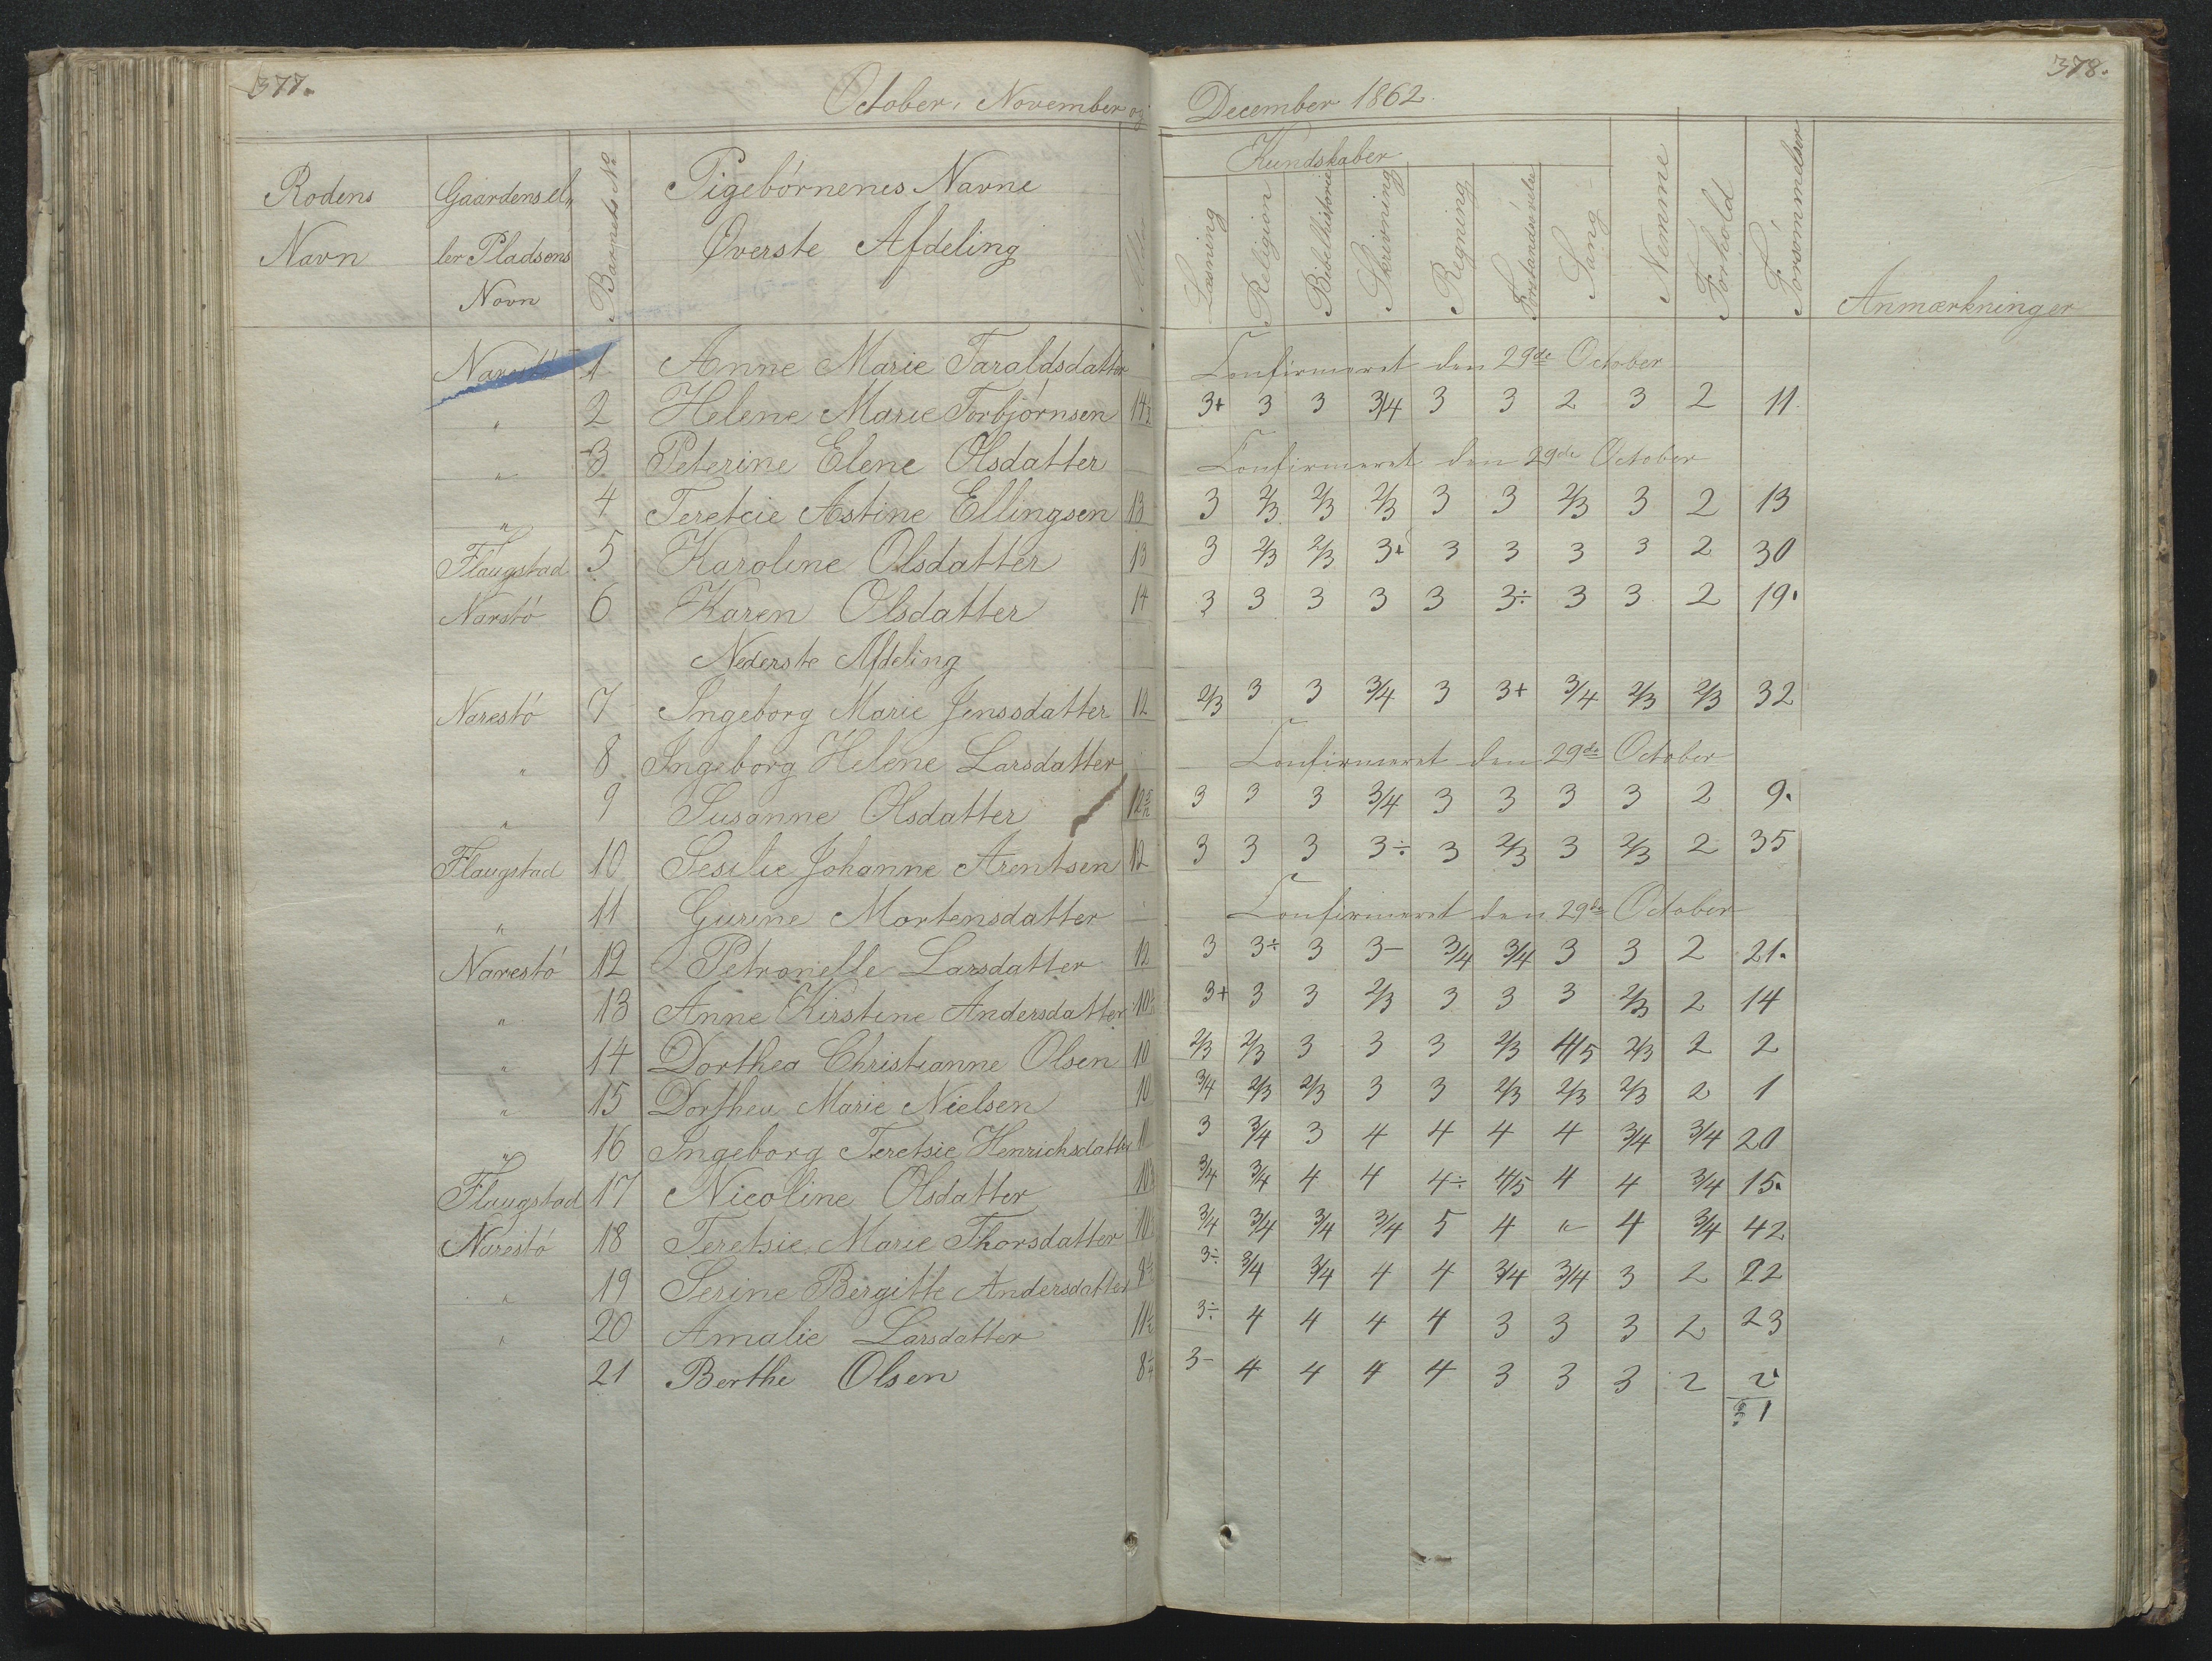 377. 378.
October, November og December 1862.
Rodens Navn | Gaardens el„ ler Pladsens Navn | Barnets No | Pigebörnenes Navne Överste Afdeling | Alder | Kundskaber | Læsning | Religion | Bibelhistorie | Skrivning | Regning | Forstandsøvelse | Sang | Nemme | Forhold | Forsömmelser | Anmærkninger
Narestö 1 Anne Marie Taraldsdatter Confirmeret den 29de October
„ 2 Helene Marie Torbjörnsen 3+ 3 3 3/4 3 3 2 3 2 11
„ 3 Peterine Elene Olsdatter Confirmeret den 29de October
„ 4 Teretcie Astine Ellingsen 13 3 2/3 2/3 2/3 3 3 2/3 3 2 13
Flaugstad 5 Karoline Olsdatter 13 3 2/3 2/3 3+ 3 3 3 3 2 30
Narstö 6 Karen Olsdatter 14 3 3 3 3 3 3÷ 3 3 2 19.
Nederste Afdeling
Narestö 7 Ingeborg Marie Jenssdatter 12 2/3 3 3 3/4 3 3+ 3/4 2/3 2/3 32
„ 8 Ingeborg Helene Larsdatter Confirmeret den 29de October
„ 9 Susanne Olsdatter 3 3 3 3/4 3 3 3 3 2 9.
Flaugstad 10 Sesilie Johanne Arentsen 12 3 3 3 3÷ 3 2/3 3 2/3 2 35
„ 11 Gurine Mortensdatter Confirmeret den 29de October
Narestö 12 Petronelle Larsdatter 12 3 3÷ 3 3- 3/4 3/4 3 3 2 21.
„ 13 Anne Kirstine Andersdatter 3+ 3 3 2/3 3 3 3 2/3 2 14
„ 14 Dorthea Christianne Olsen 10 2/3 2/3 3 3 3 2/3 4/5 2/3 2 2
„ 15 Dorthea Marie Nielsen 10 3/4 2/3 2/3 3 3 2/3 2/3 2/3 2 1
„ 16 Ingeborg Teretsie Henrichsdatter 11 3 3/4 3 4 4 4 4 3/4 3/4 20
Flaugstad 17 Nicoline Olsdatter 3/4 3/4 4 4 4÷ 4/5 4 4 3/4 15.
Narestö 18 Teretsie Marie Thorsdatter 3/4 3/4 3/4 3/4 5 4 „ 4 3/4 42
„ 19 Serine Birgitte Andersdatter 3÷ 3/4 3/4 4 4 3/4 3/4 3 2 22
„ 20 Amalie Larsdatter 11½ 3÷ 4 4 4 4 3 3 3 2 23
21 Berthe Olsen 3- 4 4 4 4 3 3 3 2 2